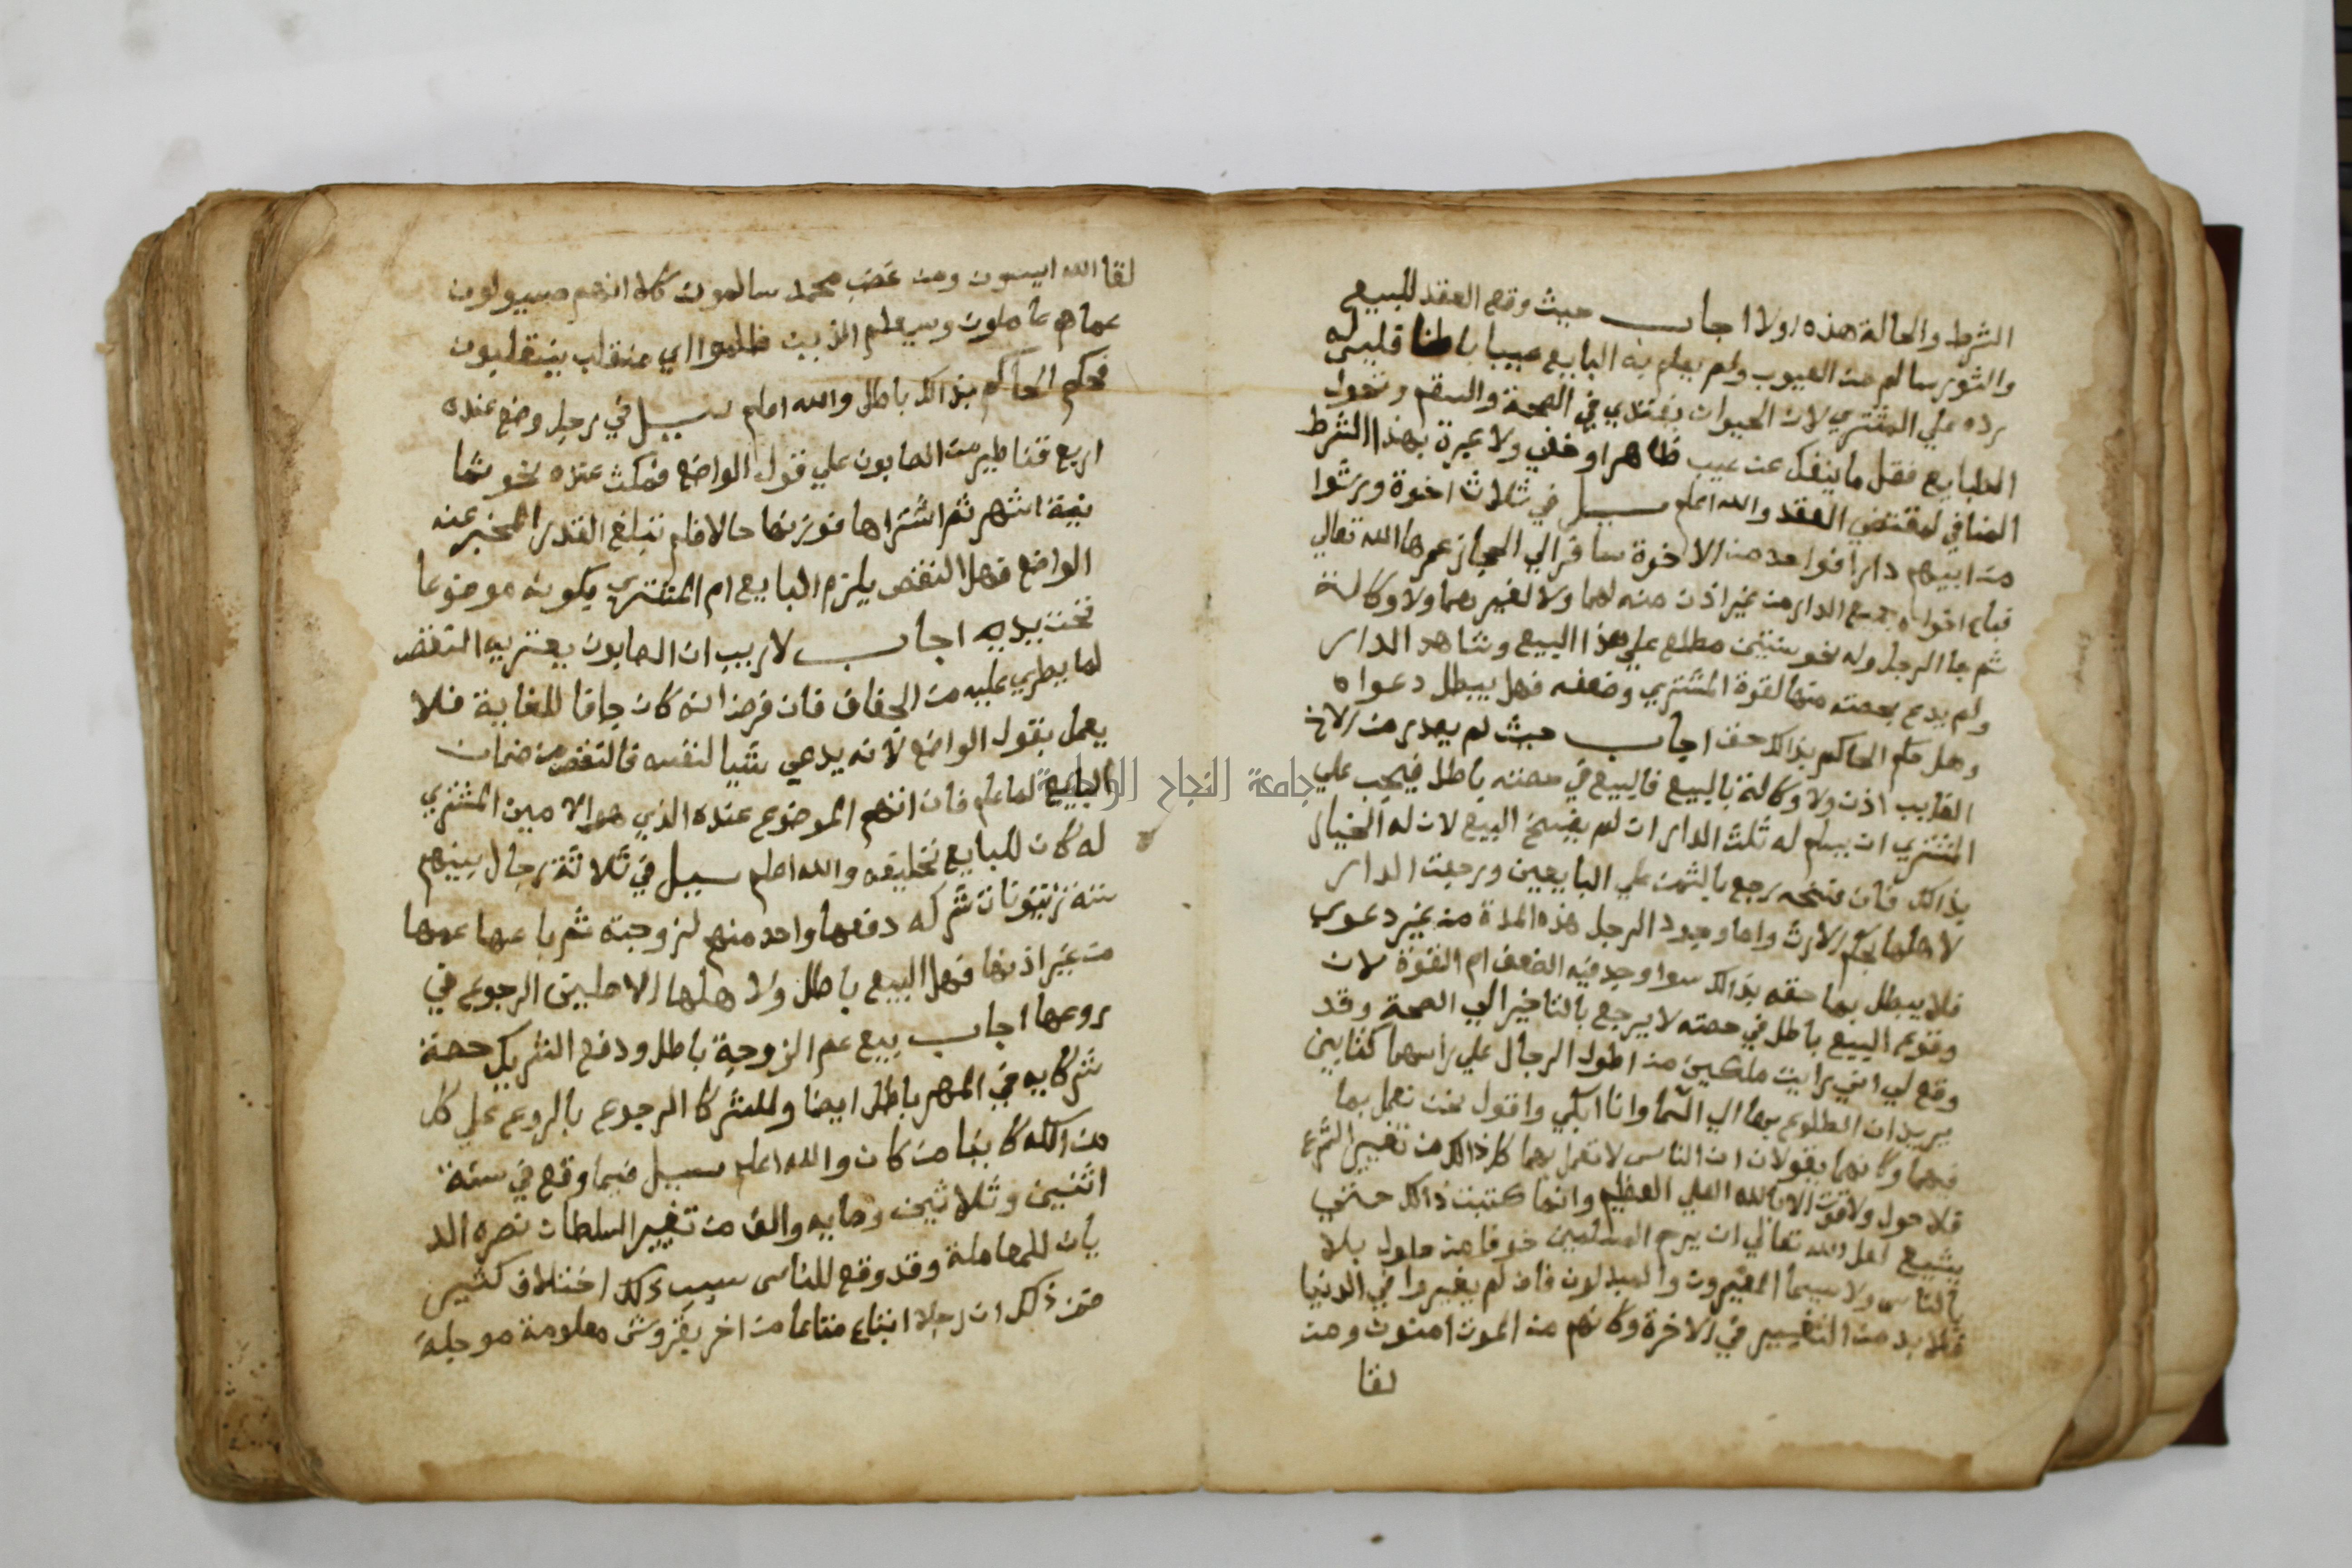 الشرط والحالة هذه اولا اجاب حيث وقع العقد للبيع
والثور سالم من العيوب ولم يعلم به البايع عيبا باطنا فليس له
رده علي المشتري لان الحيوان يغتذي في الصحة والسقم وتحول
الطبايع فقل ما ينفك عن عيب ظاهر او خفي ولا عبرة بهذا الشرط
المنافي لمقتضي العقد والله اعلم سيل في ثلاث اخوة ورثوا
من ابيهم دارا فواحد من الاخوة سافر الي الحجاز عمرها الله تعالي
فباع اخواه جميع الدار من غير اذن منه لهما ولا لغيرهما ولا وكالة
ثم جا الرجل وله نحو سنتين مطلع علي هذا البيع وشاهد الدار
ولم يدع بحصته منها لقوة المشتري وضعفه فهل يبطل دعواه
وهل حكم الحاكم بذالك حق اجاب حيث لم يصدر من الاخ
الغايب اذن ولا وكالة بالبيع فالبيع في حصته باطل فيجب علي
المشتري ان يسلم له ثلث الدار ان لم يفسخ البيع لان له الخيار
بذالك فان فسخه رجع بالثمن علي البايعين ورجعت الدار
لاهلها بحكم الارث واما وجود الرجل هذه المدة من غير دعوي
فلا يبطل بها حقه بذالك سوا وجد فيه الضعف ام القوة لان
وقوع البيع باطل في حصته لا يرجع بالتاخير الي الصحة وقد
وقع لي اني رايت ملكين من اطول الرجال علي راسهما كتابين
يريدان الطلوع بهما الي السما وانا ابكي واقول نحن نعمل بما
فيهما وكانهما يقولان ان الناس لا تعمل بهما كل ذالك من تغيير الشرع
فلا حول ولا قوة الا بالله العلي العظيم وانما كتبت ذالك حتي
يشيع لعل الله تعالي ان يرحم المسلمين خوفا من حلول بلا
بالناس ولا سيما المغيرون والمبدلون فان لم يغيروا في الدنيا
فلا بد من التغيير في الاخرة وكانهم من الموت امنون ومن
لقا
لقا الله ايسون ومن غضب محمد سالمون كلا انهم مسيولون
عما هم عاملون وسيعلم الذين ظلموا اي منقلب ينقلبون
فحكم الحاكم بذالك باطل والله اعلم سيل في رجل وضع عنده
اربع قناطير من الصابون علي قول الواضع فمكث عنده نحو ثما
نية اشهر ثم اشتراها فوزنها حالا فلم تبلغ القدر المخبر عنه
الواضع فهل النقص يلزم البايع ام المشتري بكونه موضوعا
تحت يديه اجاب لا ريب ان الصابون يعتريه النقص
لما يطري عليه من الجفاف فان فرض انه كان جافا للغاية فلا
يعمل بقول الواضع لانه يدعي شيا لنفسه فالنقص من ضمان
البايع لما علم فان اتهم الموضوع عنده الذي هو الامين المشتري
له كان للبايع تحليفه والله اعلم سيل في ثلاثة رجال بينهم
ستة زيتونات شركه دفعها واحد منهم لزوجته ثم باعها عمها
من غير اذنها فهل البيع باطل ولاهلها الاصليين الرجوع في
روعها اجاب بيع عم الزوجة باطل ودفع الشريك حصة
شركايه في المهر باطل ايضا وللشركا الرجوع بالروع علي كل
من اكله كاينا من كان والله اعلم سيل فيما وقع في سنة
اثنين وثلاثين ومايه والف من تغيير السلطان نصره الد
يان للمعاملة وقد وقع للناس سبب ذلك اختلاف كثير
فمن ذلك ان رجلا ابتاع متاعا من اخر بقروش معلومة موجلة
جامعة النجاح الوطنية